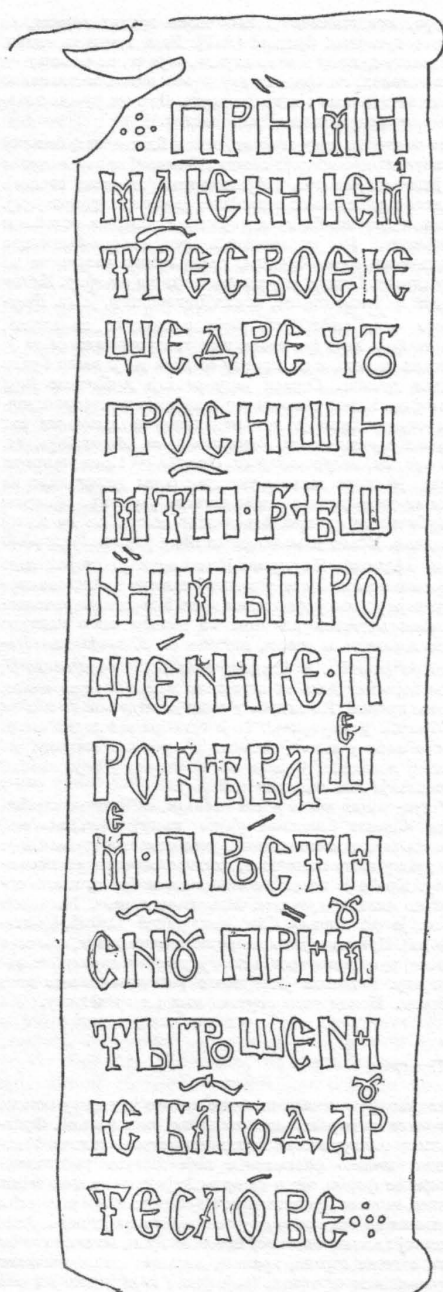 ·:· ПРИМИ
МЛѤНИѤ М
Т҃РЕ СВОЕѤ
ЩЕДРЕ ЧТО
ПРОСИШИ
МТ҃И · ВѢШ
НИМЫ ПРО
ЩЕНИѤ · П
РОГНѢВАШЕ
МЕ · ПРОСТИ
С҃НꙊ ПРИИМꙊ
ТЫ ПРОЩЕНИ
Ѥ БЛ҃ГОДАРꙊ
ТЕ СЛОВЕ ·:·